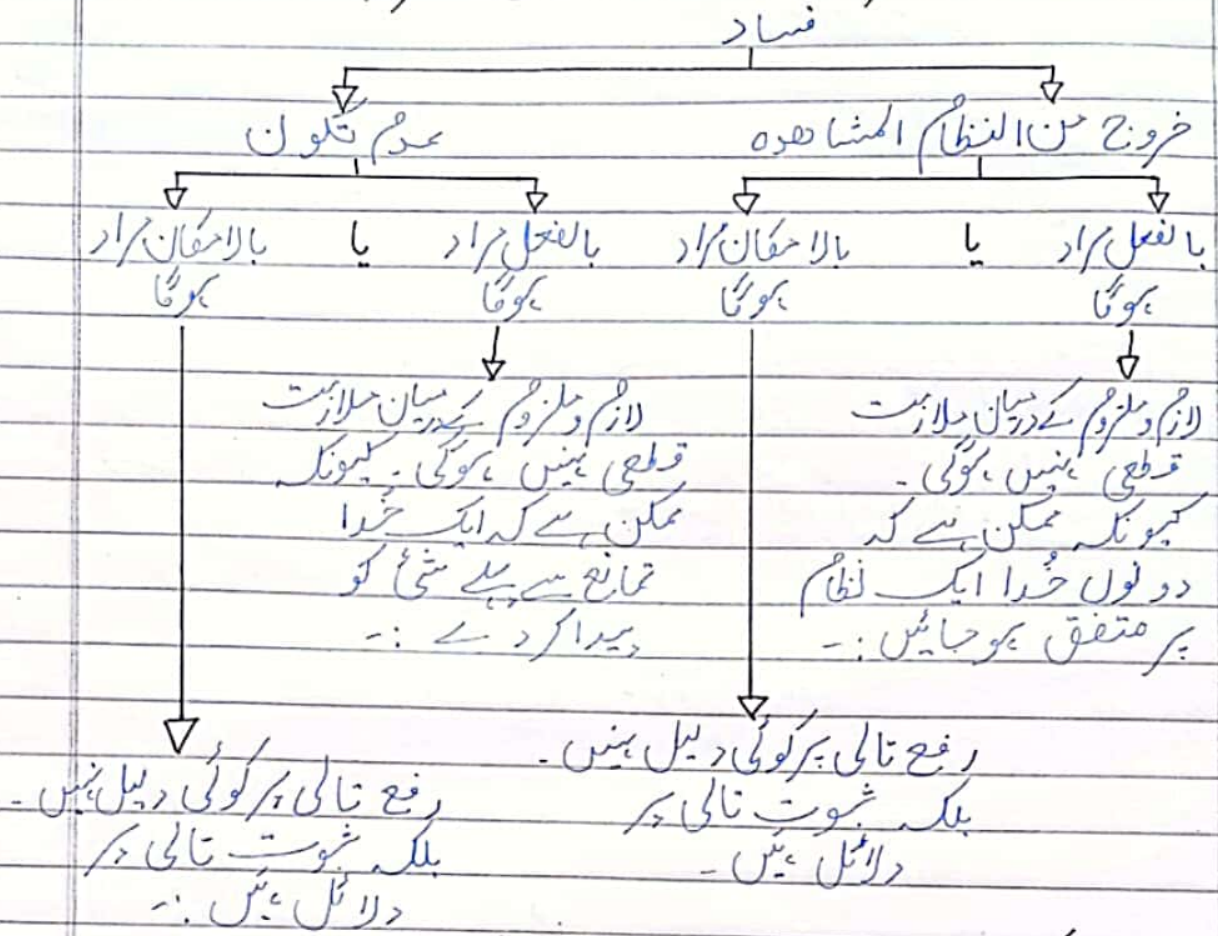 فساد
خروج عن النظام المشاهده
عدم تکون
بالفعل مراد
ہوگا
یا
بالامکان مراد
ہوگا
بالفعل مراد
ہوگا
یا
بالامکان مراد
ہوگا
لازم و ملزوم کے درمیان ملازمت
قطعی نہیں ہوگی۔
کیونکہ ممکن ہے کہ
دونوں خُدا ایک نظام
پر متفق ہو جائیں :۔
لازم و ملزوم کے درمیان ملازمت
قطعی نہیں ہوگی۔ کیونکہ
ممکن ہے کہ ایک خُدا
تمانع سے پہلے شئ کو
پیدا کر دے :۔
رفع تالی پر کوئی دلیل نہیں۔
بلکہ ثبوت تالی پر
دلائل ہیں۔
رفع تالی پر کوئی دلیل نہیں۔
بلکہ ثبوت تالی پر
دلائل ہیں :۔